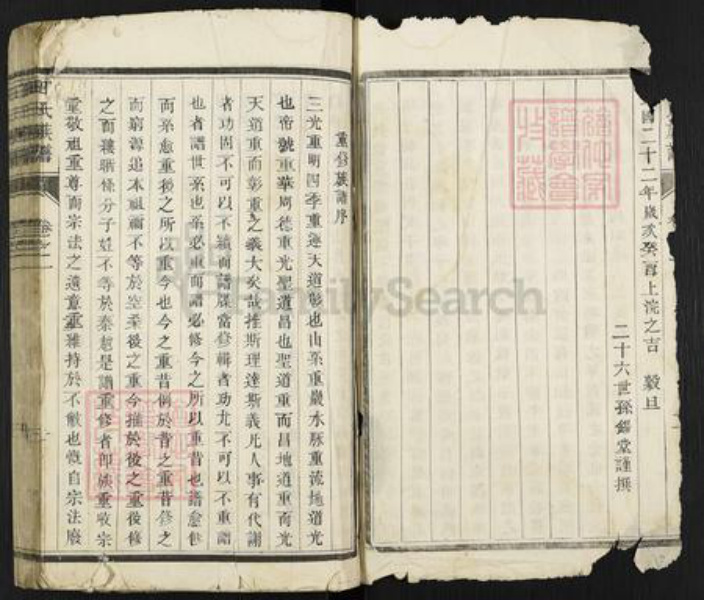 國二十二年歲次癸酉上浣之吉 穀旦
二十六世孫 堂謹撰
重修族譜序
三光重明四季重運天道彰也山系重巖水脉重流地道光
也帝號重華周德重光聖道昌也聖道重而昌地道重而光
天道重而彰重之義大矣哉推斯理達斯義凡人事有代謝
者功固不可以不 而譜牒當修輯者功尤不可以不重譜
也者譜世系也系必重而譜必修今之所以重昔也譜愈修
而系愈重後之所以重今也今之重昔例於昔之重昔修之
而窮源追本祖禰不等於空桑後之重今推於後之重後修
之而 條分子姓不等於秦越是譜重修者即族重收宗
重敬祖重尊而宗法之遺意重維持於不敝也慨自宗法廢
氏族譜
FamilySearch